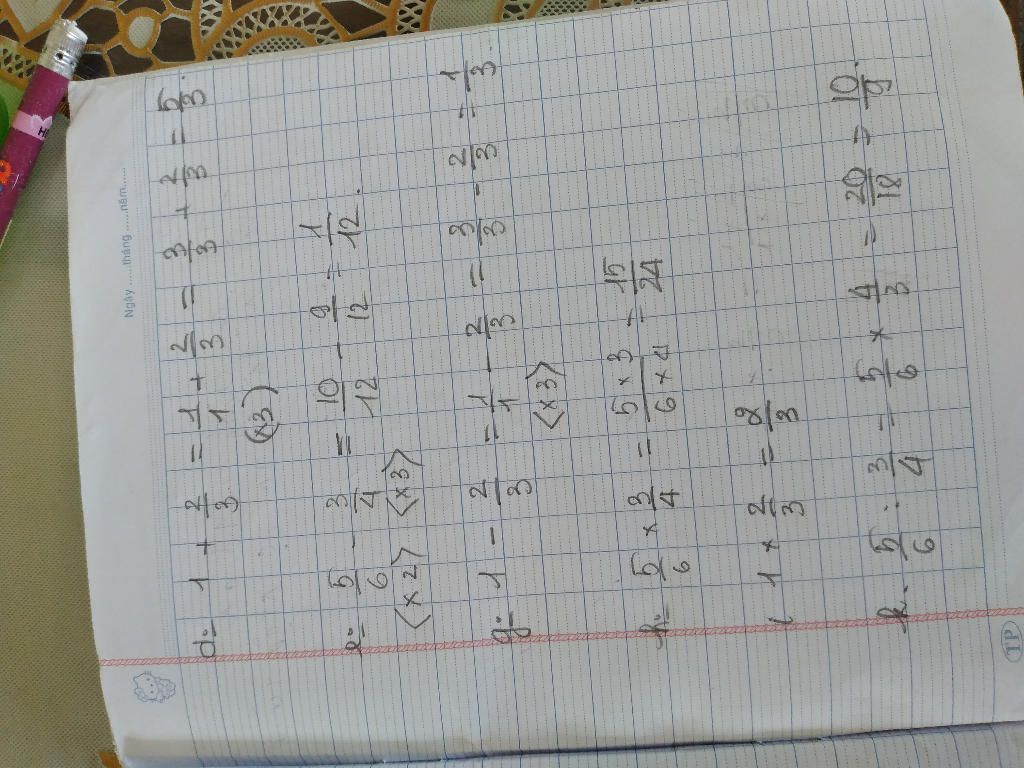 Ngày ...... tháng ...... năm ......
d. 1 + 2/3 = 1/1 + 2/3 = 3/3 + 2/3 = 5/3.
(x3)
e. 5/6 - 3/4 = 10/12 - 9/12 = 1/12.
<x2> <x3>
g. 1 - 2/3 = 1/1 - 2/3 = 3/3 - 2/3 = 1/3.
<x3>
h. 5/6 x 3/4 = 5 x 3/6 x 4 = 15/24
i 1 x 2/3 = 2/3
k. 5/6 : 3/4 = 5/6 x 4/3 = 20/18 = 10/9.
TP